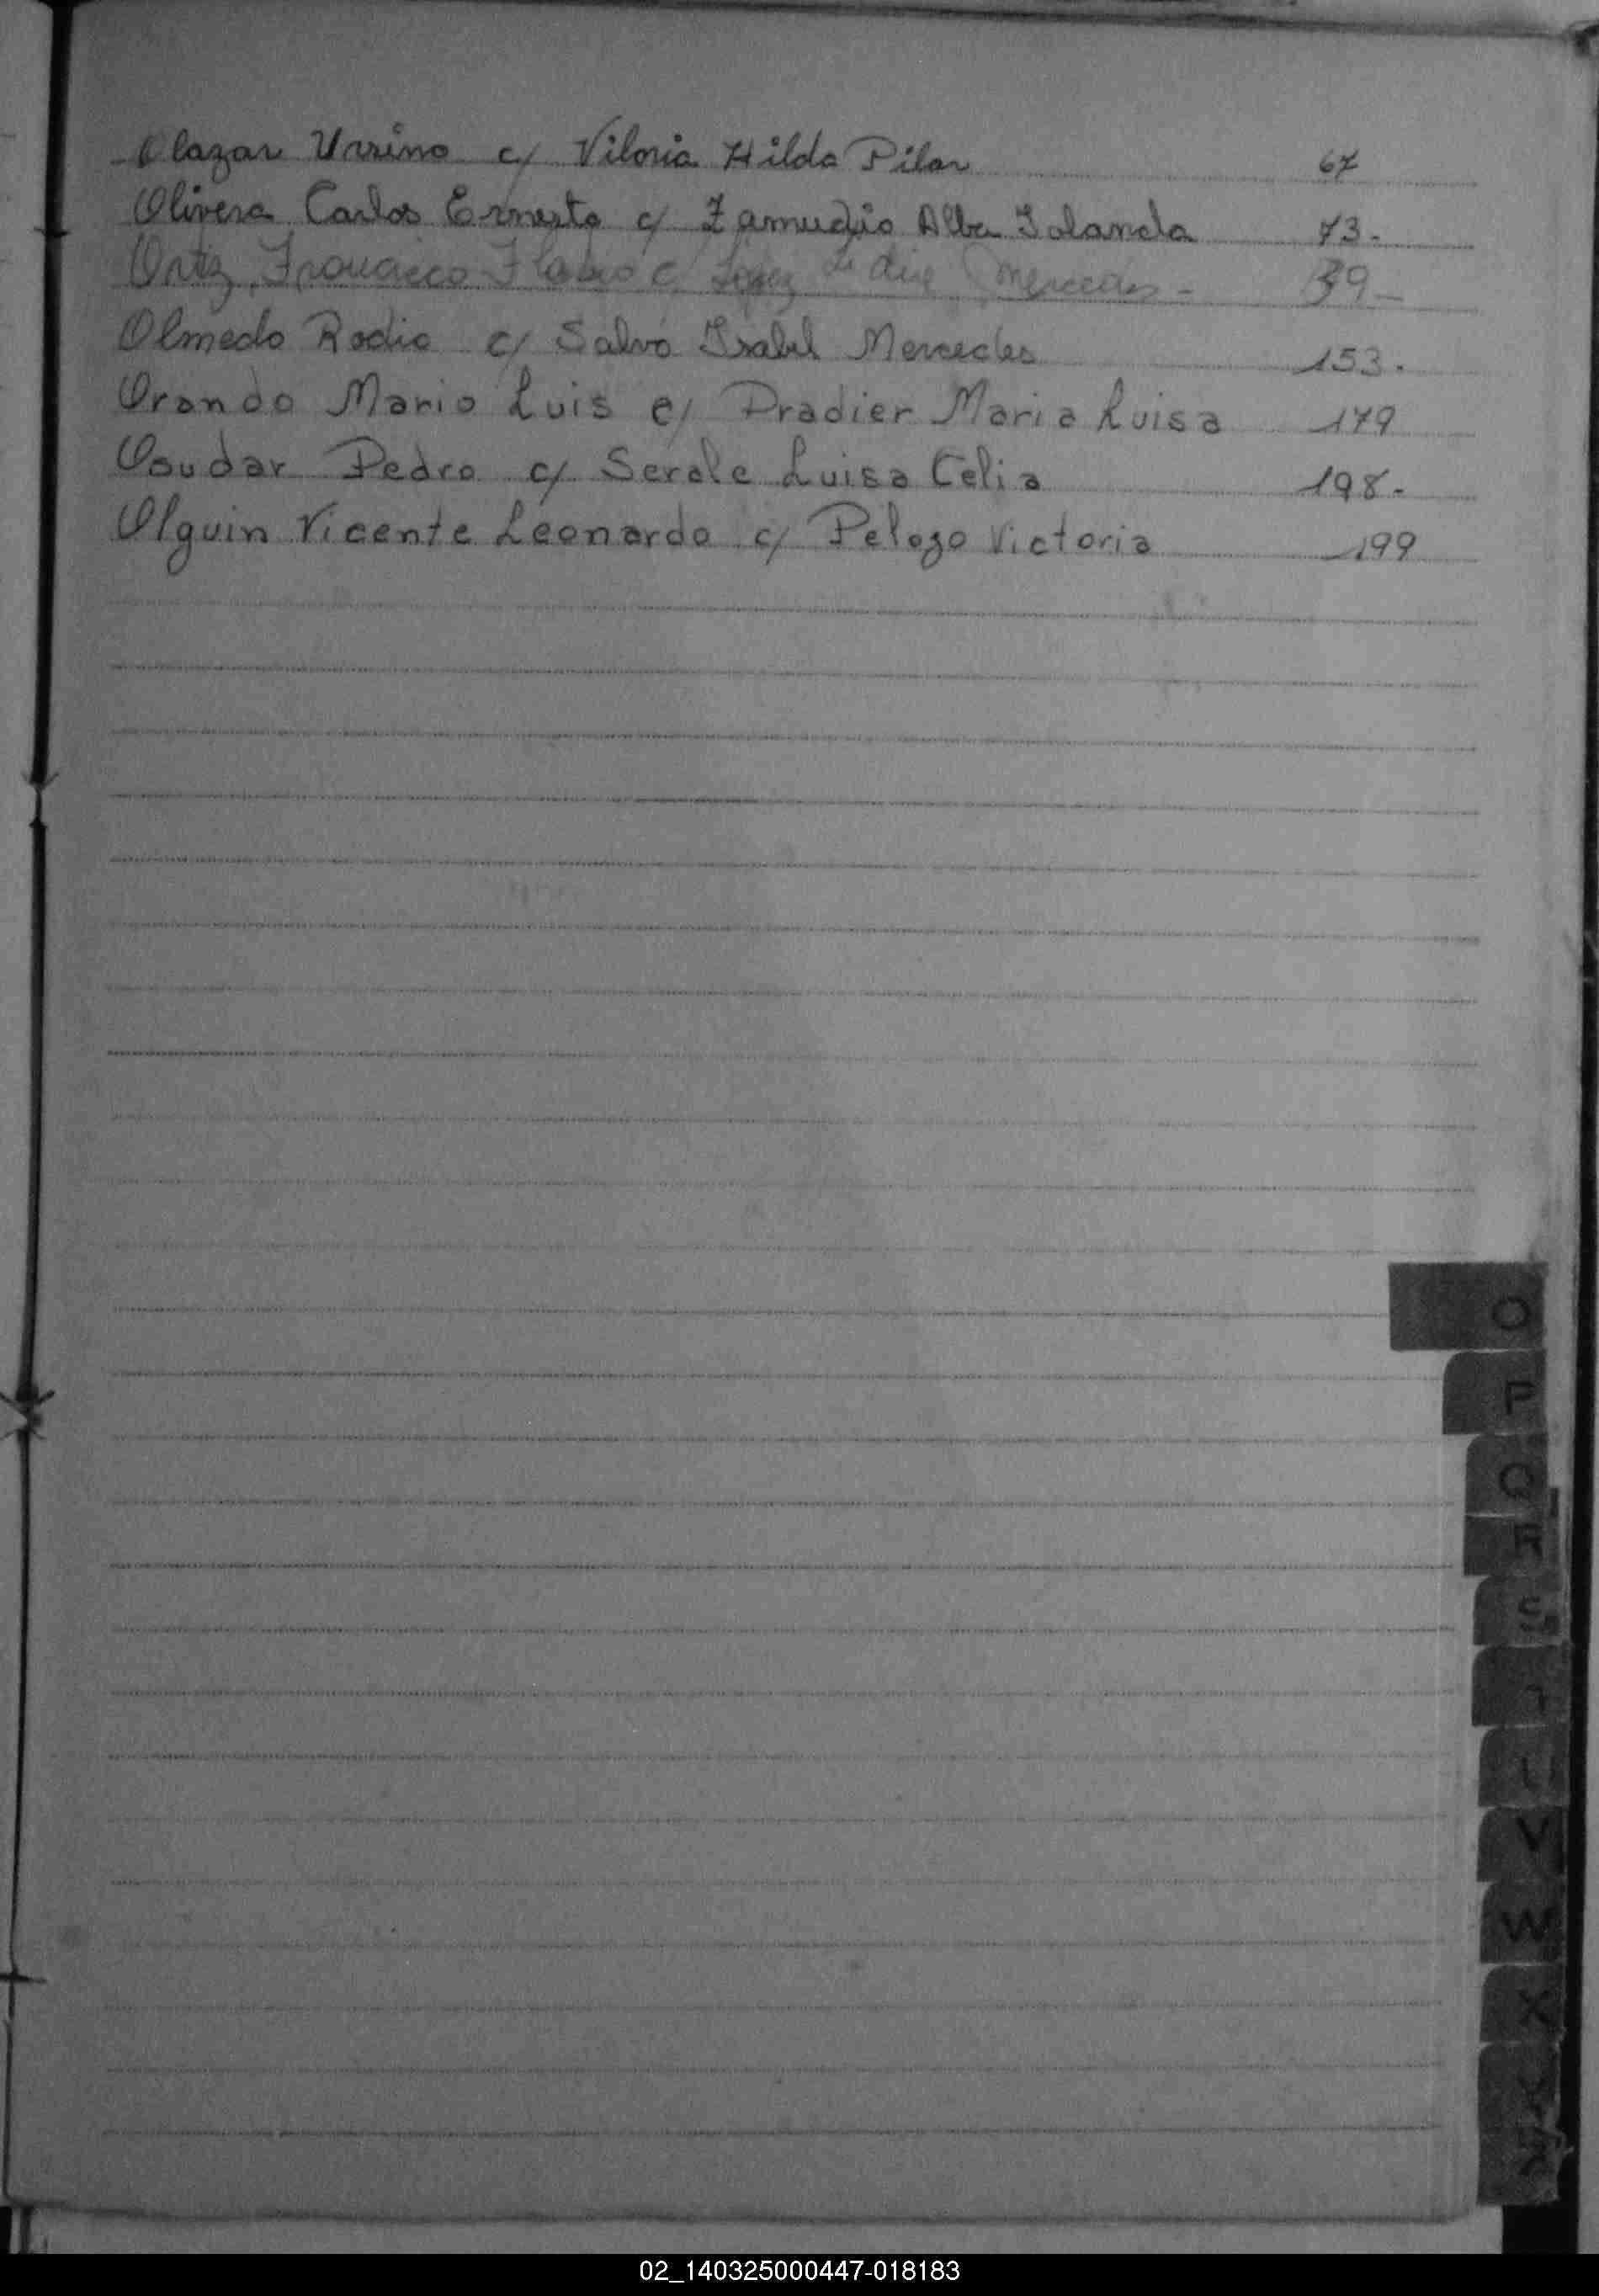 Olazar Ursino c/ Viloria Hilda Pilar 67
Olivera Carlos Ernesto c/ Zamudio Alba Iolanda 73.
Ortiz, Francisco c/ Lopez Mercedes - 39-
Olmedo Rodio c/ Salvo Isabel Mercedes 153.
Orando Mario Luis c/ Pradier Maria Luisa 179
Osudar Pedro c/ Serale Luisa Celia 198.
Olguin Vicente Leonardo c/ Pelozo Victoria 199
O
P
Q
R
S
T
U
V
W
X
Y
Z
02_140325000447-018183